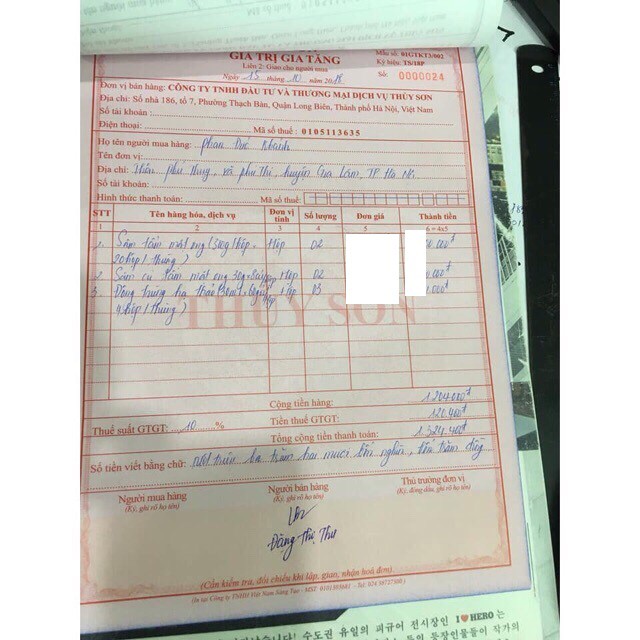 GIÁ TRỊ GIA TĂNG
Mẫu số: 01GTKT3/002
Liên 2: Giao cho người mua
Ký hiệu: TS/18P
Ngày 15 tháng 10 năm 2018
Số: 0000024
Đơn vị bán hàng: CÔNG TY TNHH ĐẦU TƯ VÀ THƯƠNG MẠI DỊCH VỤ THỦY SƠN
Địa chỉ: Số nhà 186, tổ 7, Phường Thạch Bàn, Quận Long Biên, Thành phố Hà Nội, Việt Nam
Số tài khoản:
Điện thoại: Mã số thuế: 0105113635
Họ tên người mua hàng: Phan Đức Khanh
Tên đơn vị:
Địa chỉ: Phú Thụy, xã Phú Thị, huyện Gia Lâm, TP Hà Nội
Số tài khoản:
Hình thức thanh toán: Mã số thuế:
STT Tên hàng hóa, dịch vụ Đơn vị tính Số lượng Đơn giá Thành tiền
1 2 3 4 5 6 = 4x5
1. Sâm tẩm mật ong Hộp 02
20 hộp / thùng)
2. Sâm củ tẩm mật ong Hộp 02
3. Đông trùng hạ thảo Hộp 03
hộp / thùng)
THỦY SƠN
Cộng tiền hàng: 1.204.000đ
Thuế suất GTGT: 10 % Tiền thuế GTGT: 120.400đ
Tổng cộng tiền thanh toán: 1.324.400đ
Số tiền viết bằng chữ: Một triệu ba trăm hai mươi bốn nghìn, bốn trăm đồng
Người mua hàng Người bán hàng Thủ trưởng đơn vị
(Ký, ghi rõ họ tên) (Ký, ghi rõ họ tên) (Ký, đóng dấu, ghi rõ họ tên)
Đặng Thị Thu
(Cần kiểm tra, đối chiếu khi lập, giao, nhận hoá đơn)
수도권 유일의 피규어 전시장인 I ♥ HERO는
등장인물들이 작가의